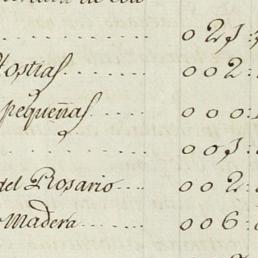 021:
Hostias.... 002:
pequeñas 000:
001:
del Rosario.... 002:
madera.... 006: